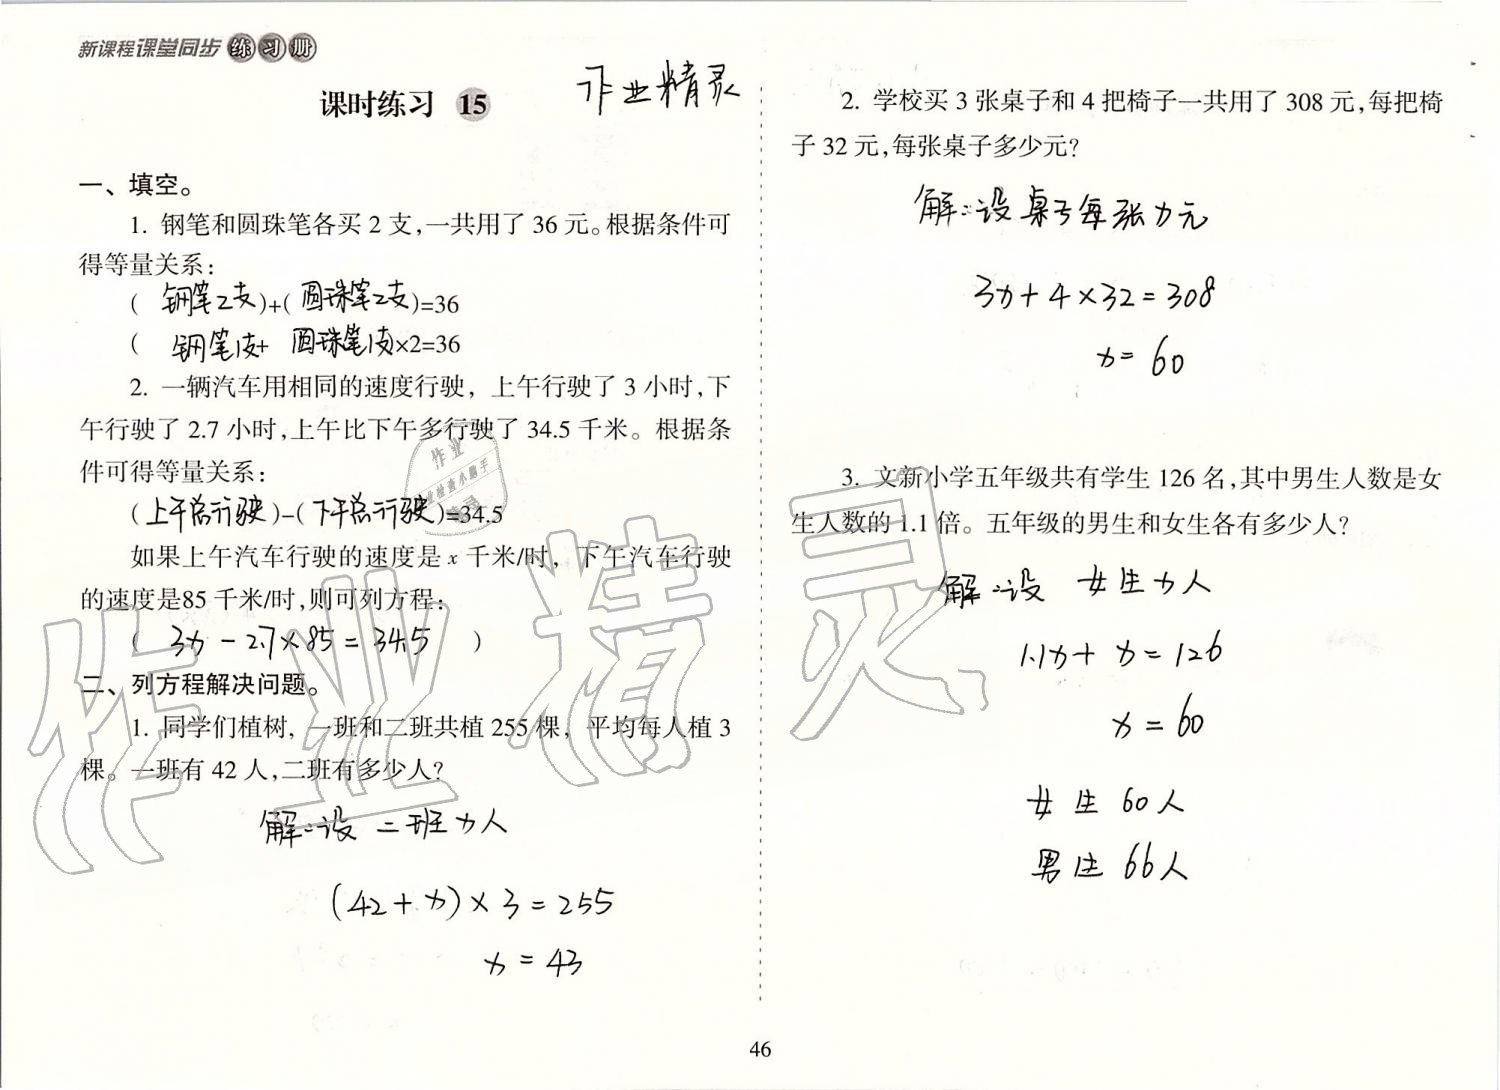 新课程课堂同步练习册
课时练习 15
作业精灵
一、填空。
1. 钢笔和圆珠笔各买 2 支,一共用了 36 元。根据条件可
得等量关系:
( 钢笔2支)+( 圆珠笔2支)=36
( 钢笔1支+ 圆珠笔1支)×2=36
2. 一辆汽车用相同的速度行驶, 上午行驶了 3 小时,下
午行驶了 2.7 小时,上午比下午多行驶了 34.5 千米。根据条
件可得等量关系:
(上午总行驶)-(下午总行驶)=34.5
如果上午汽车行驶的速度是 x 千米/时, 下午汽车行驶
的速度是85 千米/时,则可列方程:
( 3x - 2.7×85 = 34.5 )
二、列方程解决问题。
1. 同学们植树, 一班和二班共植 255 棵, 平均每人植 3
棵。一班有 42 人,二班有多少人?
解:设 二班x人
(42+x)×3=255
x=43
2. 学校买 3 张桌子和 4 把椅子一共用了 308 元,每把椅
子 32 元,每张桌子多少元?
解:设桌子每张x元
3x+4×32=308
x=60
3. 文新小学五年级共有学生 126 名,其中男生人数是女
生人数的 1.1 倍。五年级的男生和女生各有多少人?
解:设 女生x人
1.1x+x=126
x=60
女生60人
男生66人
作业精灵
46